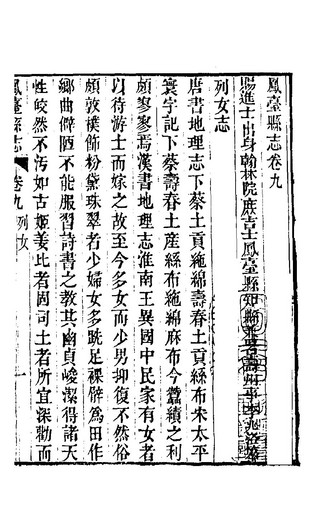 鳳臺縣志卷九
賜進士出身翰林院庶吉士鳳臺縣知縣兼署壽州事李兆洛撰
列女志
唐書地理志下蔡土貢絁綿壽春土貢絲布朱太平
寰宇記下蔡壽春土產絲布絁綿麻布今蠶績之利
頗寥寥焉漢書地理志淮南王異國中民家有女者
以待游士而嫁之故至今多女而少男抑復不然俗
頗敦樸飾粉黛珠翠者少婦女多跣足裸臂爲田作
鄉曲僻陋不能服習詩書之教其幽貞峻潔得諸天
性皎然不汚如古姬姜比者固司土者所宜深勸而
鳳臺縣志
卷九
列女
一